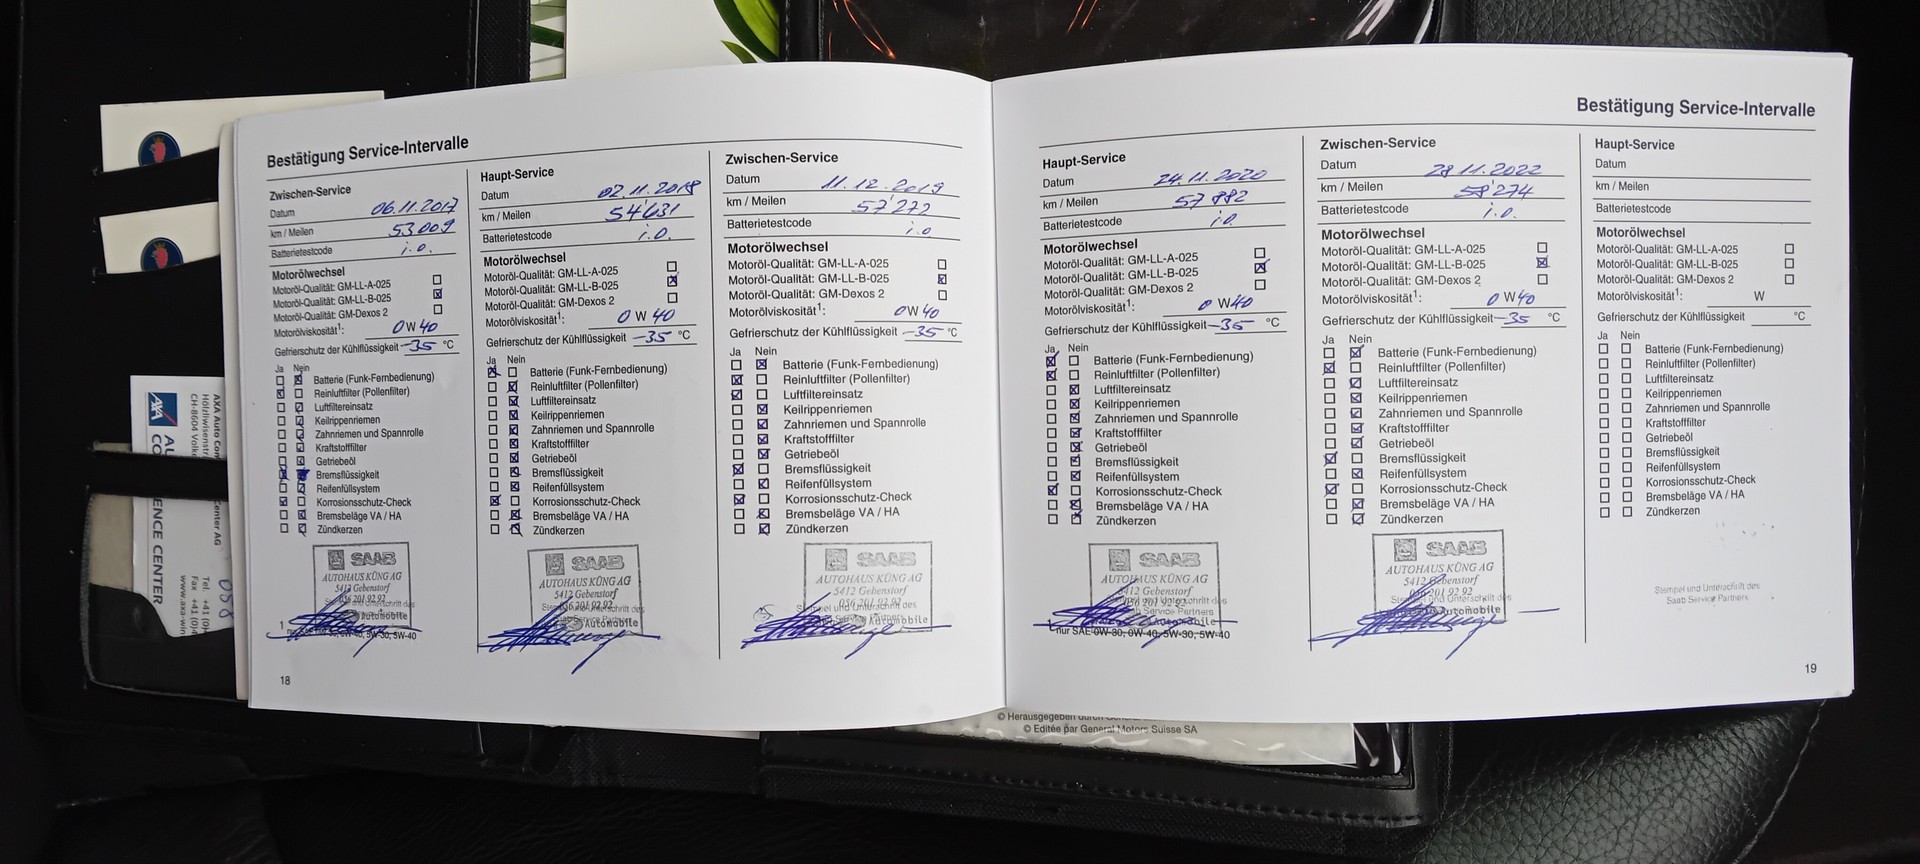 Bestätigung Service-Intervalle
Zwischen-Service
Datum 06.11.2017
km / Meilen 53009
Batterietestcode i.o.
Motorölwechsel
Motoröl-Qualität: GM-LL-A-025
Motoröl-Qualität: GM-LL-B-025
Motoröl-Qualität: GM-Dexos 2
Motorölviskosität1: 0 W 40
Gefrierschutz der Kühlflüssigkeit -35 °C
Ja Nein
Batterie (Funk-Fernbedienung)
Reinluftfilter (Pollenfilter)
Luftfiltereinsatz
Keilrippenriemen
Zahnriemen und Spannrolle
Kraftstofffilter
Getriebeöl
Bremsflüssigkeit
Reifenfüllsystem
Korrosionsschutz-Check
Bremsbeläge VA / HA
Zündkerzen
SAAB
AUTOHAUS KÜNG AG
5412 Gebenstorf
056 201 92 92
Automobile
18
Haupt-Service
Datum 02.11.2018
km / Meilen 54'631
Batterietestcode i.o.
Motorölwechsel
Motoröl-Qualität: GM-LL-A-025
Motoröl-Qualität: GM-LL-B-025
Motoröl-Qualität: GM-Dexos 2
Motorölviskosität1: 0 W 40
Gefrierschutz der Kühlflüssigkeit -35 °C
Ja Nein
Batterie (Funk-Fernbedienung)
Reinluftfilter (Pollenfilter)
Luftfiltereinsatz
Keilrippenriemen
Zahnriemen und Spannrolle
Kraftstofffilter
Getriebeöl
Bremsflüssigkeit
Reifenfüllsystem
Korrosionsschutz-Check
Bremsbeläge VA / HA
Zündkerzen
SAAB
AUTOHAUS KÜNG AG
5412 Gebenstorf
056 201 92 92
Automobile
Zwischen-Service
Datum 11.12.2019
km / Meilen 57'272
Batterietestcode i.o.
Motorölwechsel
Motoröl-Qualität: GM-LL-A-025
Motoröl-Qualität: GM-LL-B-025
Motoröl-Qualität: GM-Dexos 2
Motorölviskosität1: 0 W 40
Gefrierschutz der Kühlflüssigkeit -35 °C
Ja Nein
Batterie (Funk-Fernbedienung)
Reinluftfilter (Pollenfilter)
Luftfiltereinsatz
Keilrippenriemen
Zahnriemen und Spannrolle
Kraftstofffilter
Getriebeöl
Bremsflüssigkeit
Reifenfüllsystem
Korrosionsschutz-Check
Bremsbeläge VA / HA
Zündkerzen
SAAB
AUTOHAUS KÜNG AG
5412 Gebenstorf
056 201 92 92
Automobile
Bestätigung Service-Intervalle
Haupt-Service
Datum 24.11.2020
km / Meilen 57'882
Batterietestcode i.o.
Motorölwechsel
Motoröl-Qualität: GM-LL-A-025
Motoröl-Qualität: GM-LL-B-025
Motoröl-Qualität: GM-Dexos 2
Motorölviskosität1: 0 W 40
Gefrierschutz der Kühlflüssigkeit -35 °C
Ja Nein
Batterie (Funk-Fernbedienung)
Reinluftfilter (Pollenfilter)
Luftfiltereinsatz
Keilrippenriemen
Zahnriemen und Spannrolle
Kraftstofffilter
Getriebeöl
Bremsflüssigkeit
Reifenfüllsystem
Korrosionsschutz-Check
Bremsbeläge VA / HA
Zündkerzen
SAAB
AUTOHAUS KÜNG AG
5412 Gebenstorf
056 201 92 92
1 nur SAE 0W-30, 0W-40, 5W-30, 5W-40
Zwischen-Service
Datum 28.11.2022
km / Meilen 58'274
Batterietestcode i.o.
Motorölwechsel
Motoröl-Qualität: GM-LL-A-025
Motoröl-Qualität: GM-LL-B-025
Motoröl-Qualität: GM-Dexos 2
Motorölviskosität1: 0 W 40
Gefrierschutz der Kühlflüssigkeit -35 °C
Ja Nein
Batterie (Funk-Fernbedienung)
Reinluftfilter (Pollenfilter)
Luftfiltereinsatz
Keilrippenriemen
Zahnriemen und Spannrolle
Kraftstofffilter
Getriebeöl
Bremsflüssigkeit
Reifenfüllsystem
Korrosionsschutz-Check
Bremsbeläge VA / HA
Zündkerzen
SAAB
AUTOHAUS KÜNG AG
5412 Gebenstorf
056 201 92 92
Automobile
Haupt-Service
Datum
km / Meilen
Batterietestcode
Motorölwechsel
Motoröl-Qualität: GM-LL-A-025
Motoröl-Qualität: GM-LL-B-025
Motoröl-Qualität: GM-Dexos 2
Motorölviskosität1: W
Gefrierschutz der Kühlflüssigkeit °C
Ja Nein
Batterie (Funk-Fernbedienung)
Reinluftfilter (Pollenfilter)
Luftfiltereinsatz
Keilrippenriemen
Zahnriemen und Spannrolle
Kraftstofffilter
Getriebeöl
Bremsflüssigkeit
Reifenfüllsystem
Korrosionsschutz-Check
Bremsbeläge VA / HA
Zündkerzen
Stempel und Unterschrift des
Saab Service Partners
19
© Herausgegeben durch
© Editée par General Motors Suisse SA
AXA
AXA Auto
Hölzliwisenstr
CH-8604 Volk
Center AG
ENCE CENTER
Tel. +41
Fax +41
www.axa-win